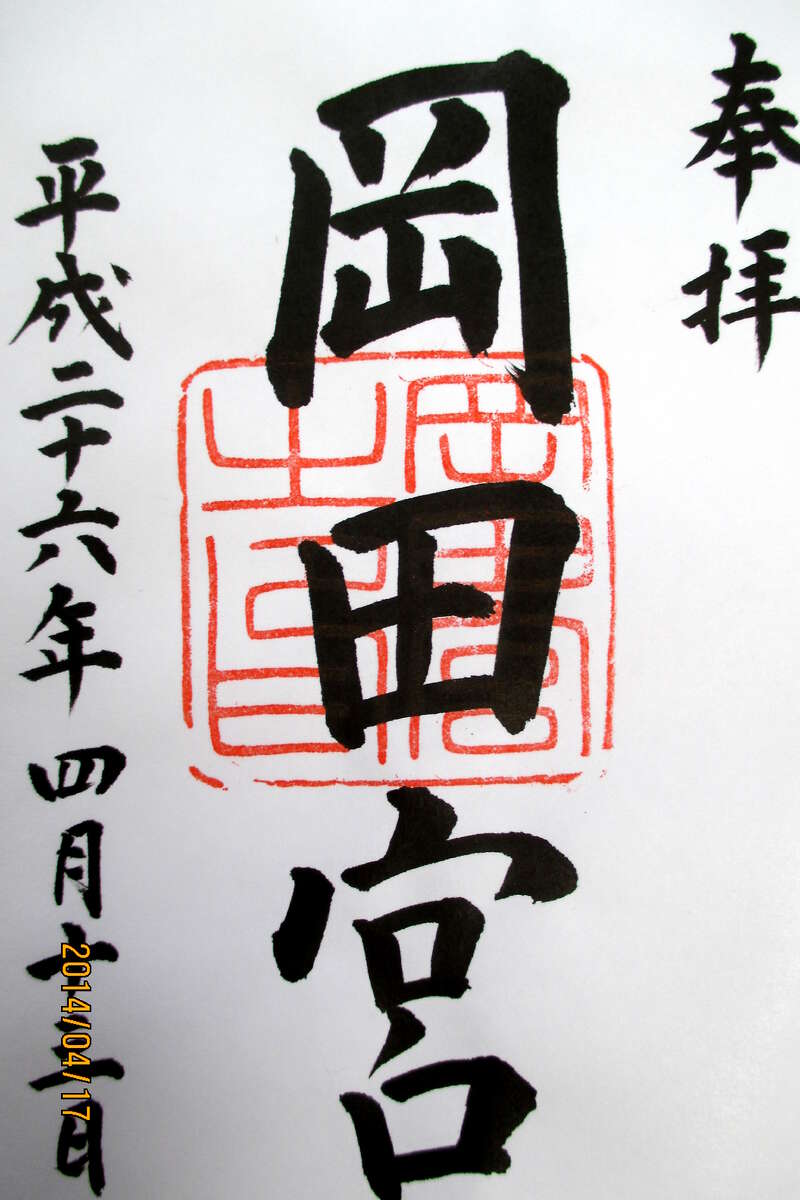 奉拝
岡田宮
平成二十六年四月十三日
2014/04/17